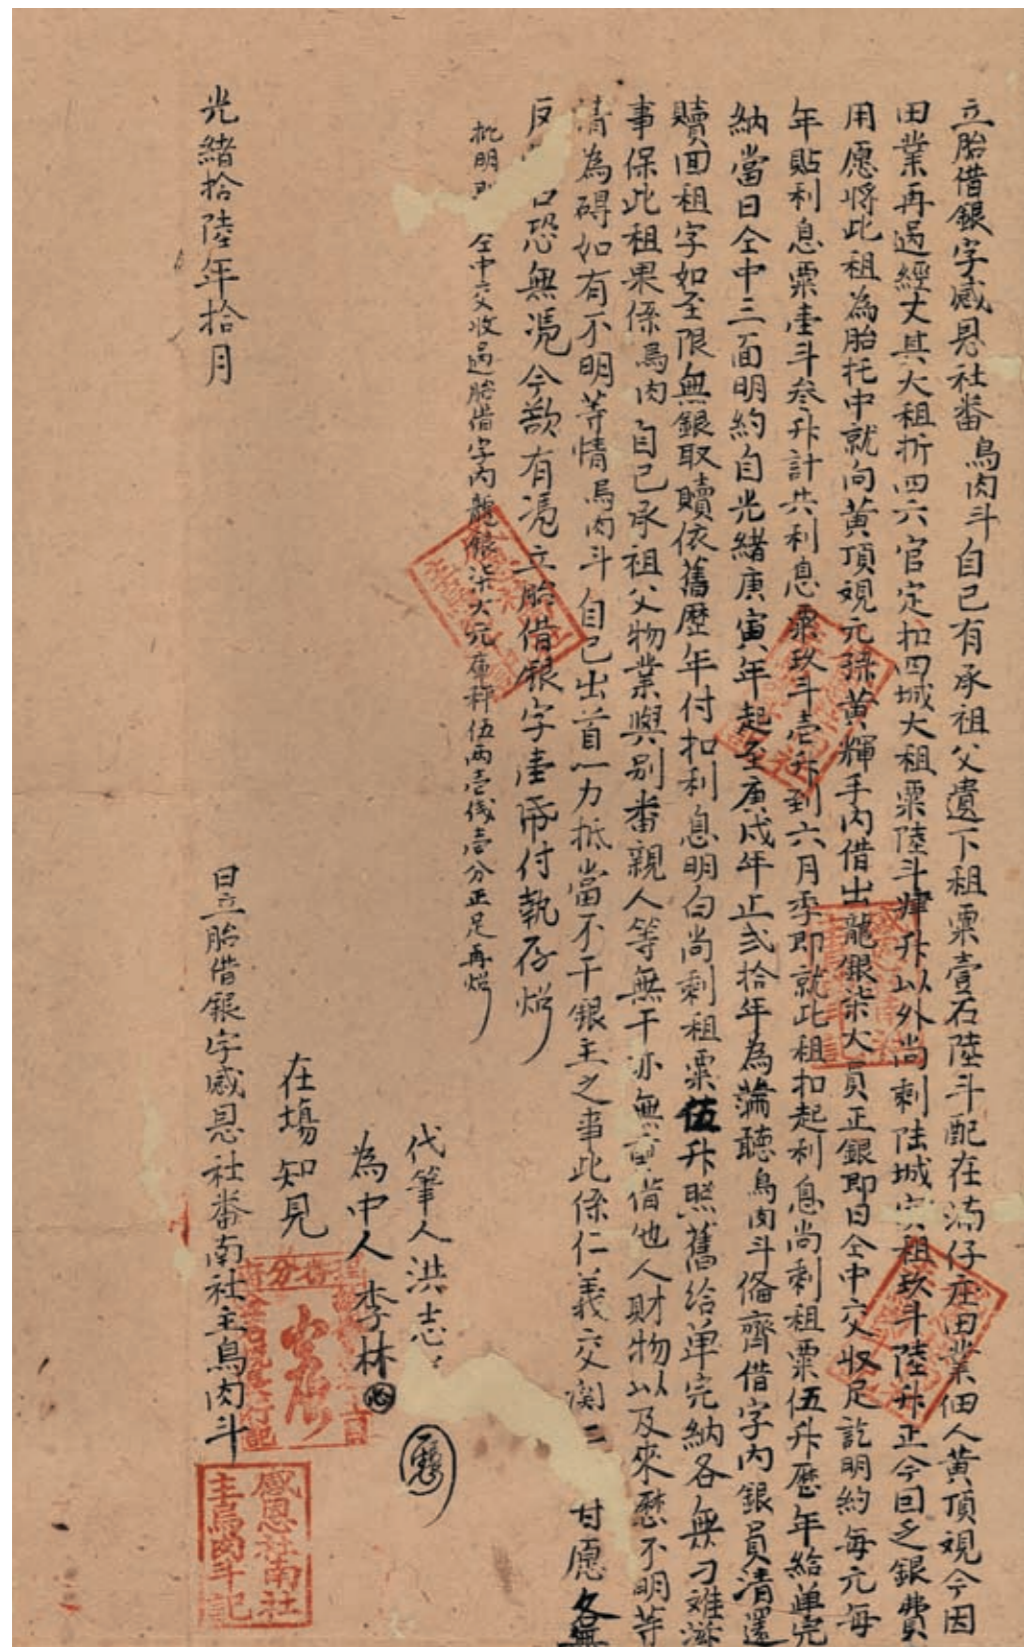 立胎借銀字感恩社番烏肉斗自己有承祖父遺下租粟壹石陸斗配在湳仔庄田業佃人黃頂覌今因
田業再過經丈其大租折四六官定扣四城大租粟陸斗肆升以外尚剩陆城實租玖斗陸升正今因乏銀費
用愿將此租為胎托中就向黃頂覌元孫黃輝手內借出龍銀柒大員正銀即日仝中交收足訖明約每元每
年貼利息粟壹斗叁升計共利息粟玖斗壹升到六月季即就此租扣起利息尚剩租粟伍升歷年給单完
納當日仝中三面明約自光緒庚寅年起至庚戌年止弍拾年為滿聽烏肉斗俻齊借字內銀員清還
贖回租字如至限無銀取贖依舊歷年付扣利息明白尚剩租粟伍升照舊給单完納各無刁难滋
事保此租果係烏肉自己承祖父物業與別番親人等無干亦無前借他人財物以及來歷不明等
情為碍如有不明等情烏肉斗自己出首一力抵當不干銀主之事此係仁義交関二 甘愿各無
反 口恐無憑今欲有憑立胎借銀字壹帋付執存炤
批明即 仝中交收過胎借字內龍銀柒大元庫秤伍両壱錢壱分正足再炤
代筆人洪志
為中人李林
在塲知見
光緒拾陸年拾月 日立胎借銀字感恩社番南社主烏肉斗
感恩社南社
主烏肉斗記